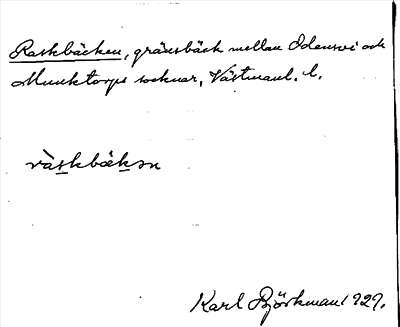 Raskbäcken, gränsbäck mellan Odensvi och
Munktorps socknar, Västmanl. l.
ràskbäkən
Karl Björkman 1929.